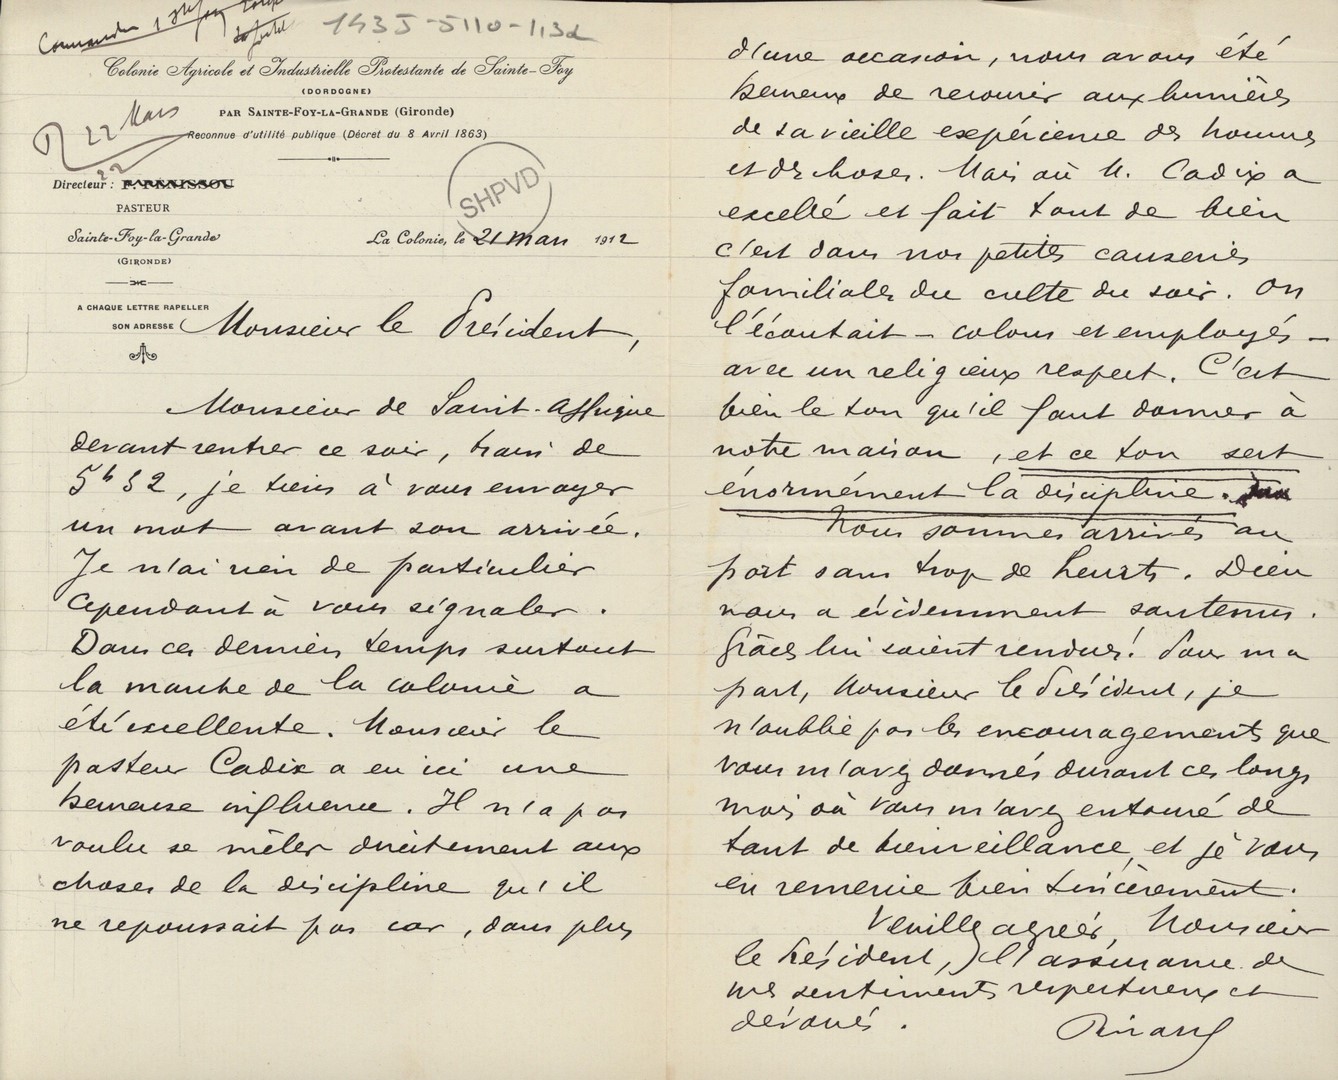 Commander 1
143J-5110-1,3d
Colonie Agricole et Industrielle Protestante de Sainte-Foy
(DORDOGNE)
PAR SAINTE-FOY-LA-GRANDE (Gironde)
Reconnue d'utilité publique (Décret du 8 Avril 1863)
R 22 Mars
22
SHPVD
Directeur : F. PÉNISSOU
PASTEUR
Sainte-Foy-la-Grande
(GIRONDE)
La Colonie, le 21 mars 1912
A CHAQUE LETTRE RAPELLER
SON ADRESSE
Monsieur le Président,
Monsieur de Saint-Affrique
devant rentrer ce soir, train de
5h32, je tiens à vous envoyer
un mot avant son arrivée.
Je n'ai rien de particulier
cependant à vous signaler.
Dans ces derniers temps surtout
la marche de la colonie a
été excellente. Monsieur le
pasteur Cadix a eu ici une
heureuse influence. Il n'a pas
voulu se mêler directement aux
choses de la discipline qu'il
ne repoussait pas car, dans plus
d'une occasion, nous avons été
heureux de recourir aux lumières
de sa vieille expérience des hommes
et des choses. Mais où M. Cadix a
excellé et fait tout de bien
c'est dans nos petites causeries
familiales du culte du soir. On
l'écoutait – colons et employés –
avec un religieux respect. C'est
bien le ton qu'il faut donner à
notre maison, et ce ton sert
énormément la discipline.
Nous sommes arrivés au
port sans trop de heurts. Dieu
nous a évidemment soutenus.
Grâces lui soient rendues! Pour ma
part, Monsieur le Président, je
n'oublie pas les encouragements que
vous m'avez donnés durant ces longs
mois où vous m'avez entouré de
tant de bienveillance, et je vous
en remercie bien sincèrement.
Veuillez agréer, Monsieur
le Président, l'assurance de
mes sentiments respectueux et
dévoués.